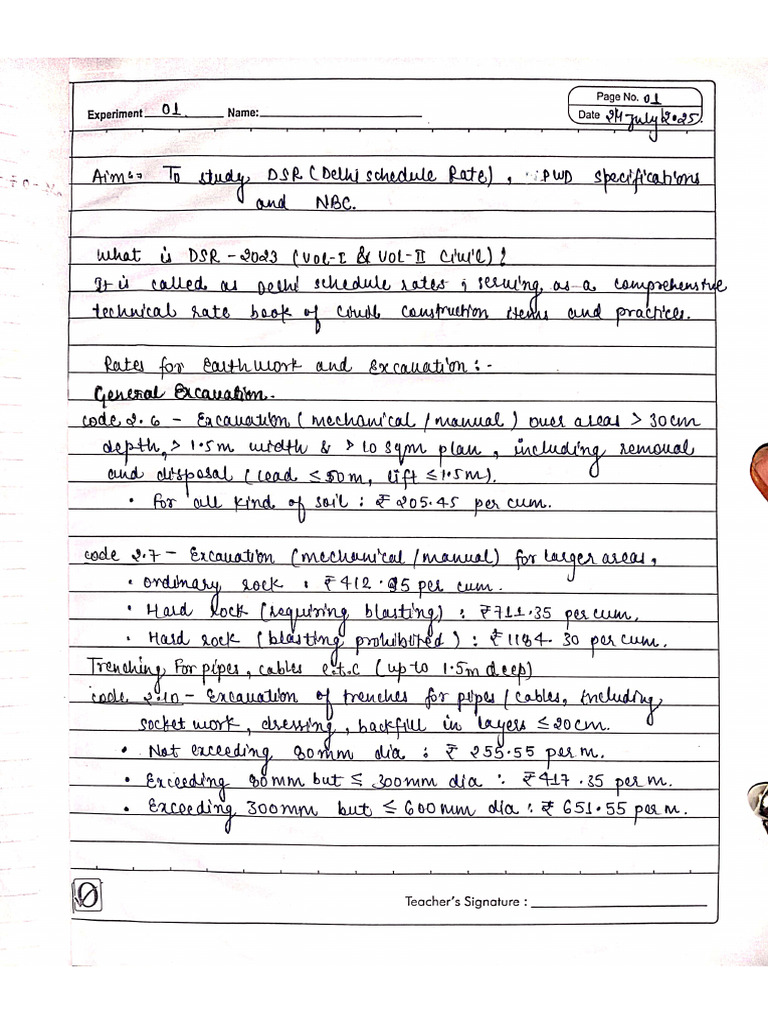 Page No. 01
Experiment 01 Name:
Date 24 July 2025.
Aim:- To study DSR (Delhi schedule Rate), PWD specifications
and NBC.
What is DSR - 2023 (VOL-I & VOL-II Civil)?
It is called as Delhi schedule rates ; serving as a comprehenstive
technical rate book of civil construction items and practices.
Rates for Earthwork and Excavation :-
General Excavation.
code 2.6 - Excavation (mechanical/manual) over areas > 30cm
depth, > 1.5m width & > 10 sqm plan, including removal
and disposal (lead ≤ 50m, lift ≤ 1.5m).
• for all kind of soil : ₹ 205.45 per cum.
code 2.7 - Excavation (mechanical/manual) for larger areas,
• ordinary rock : ₹412.95 per cum.
• Hard rock (requiring blasting) : ₹711.35 per cum.
• Hard rock (blasting prohibited) : ₹1184.30 per cum.
Trenching for pipes, cables e.t.c (up to 1.5m deep)
code 2.10 - Excavation of trenches for pipes/cables, including
socket work, dressing, backfill in layers ≤ 20cm.
• Not exceeding 80mm dia : ₹ 255.55 per m.
• Exceeding 80mm but ≤ 300mm dia : ₹417.35 per m.
• Exceeding 300mm but ≤ 600mm dia : ₹ 651.55 per m.
Teacher's Signature :